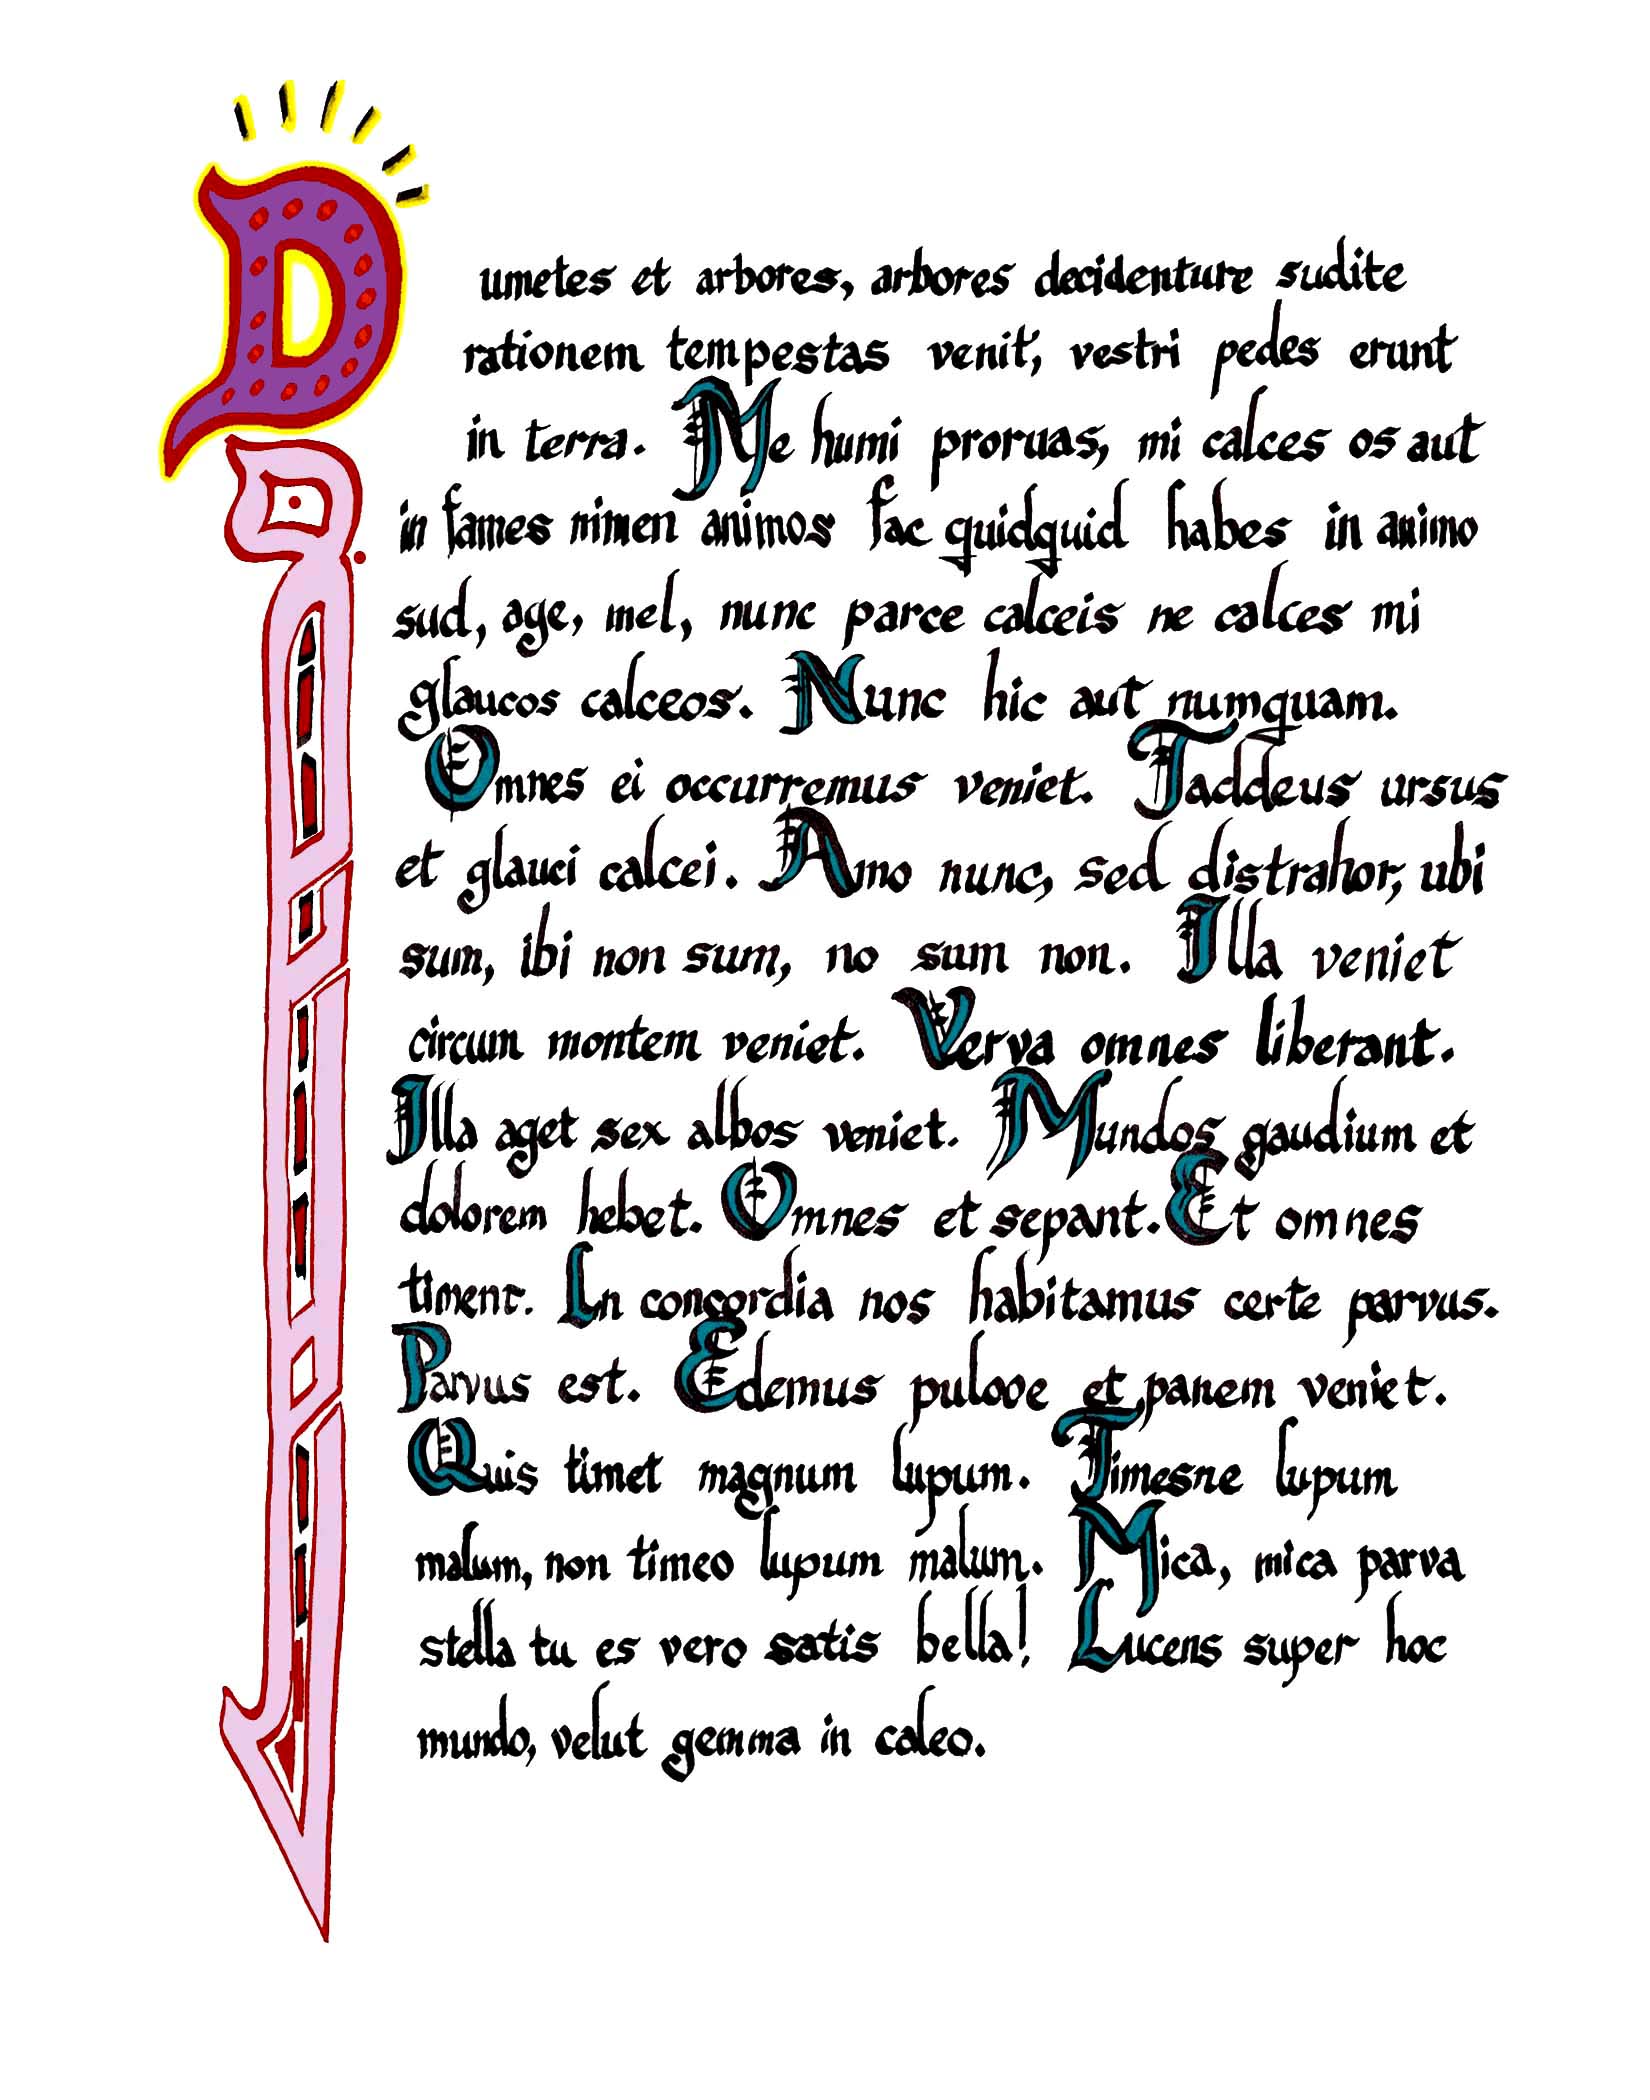 Dumetes et arbores, arbores decidenture sudite
rationem tempestas venit, vestri pedes erunt
in terra. Me humi proruas, mi calces os aut
in fames nimen animos fac quidquid habes in animo
sud, age, mel, nunc parce calceis ne calces mi
glaucos calceos. Nunc hic aut numquam.
Omnes ei occurremus veniet. Taddeus ursus
et glauci calcei. Amo nunc, sed distrahor, ubi
sum, ibi non sum, no sum non. Illa veniet
circum montem veniet. Verva omnes liberant.
Illa aget sex albos veniet. Mundos gaudium et
dolorem hebet. Omnes et sepant. Et omnes
timent. In concordia nos habitamus certe parvus.
Parvus est. Edemus pulooe et panem veniet.
Quis timet magnum lupum. Timesne lupum
malum, non timeo lupum malum. Mica, mica parva
stella tu es vero satis bella! Lucens super hoc
mundo, velut gemma in caleo.